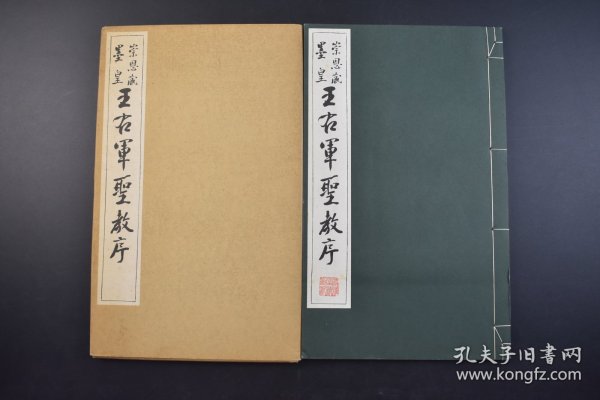 崇恩藏
墨皇
王右軍聖教序
崇恩藏
墨皇
王右軍聖教序
孔夫子旧书网
www.kongfz.com